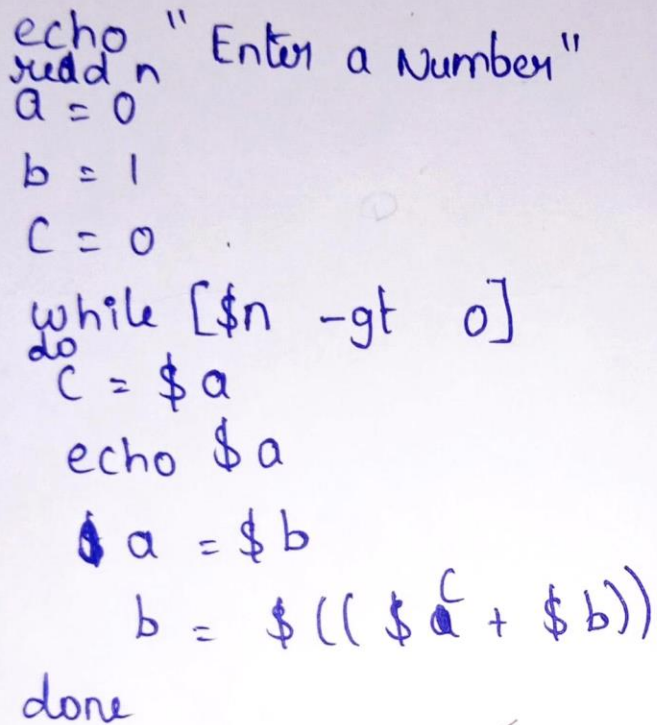 echo "Enter a Number"
read n
a = 0
b = 1
c = 0
while [$n -gt 0]
do
c = $a
echo $a
a = $b
b = $(( $c + $b))
done